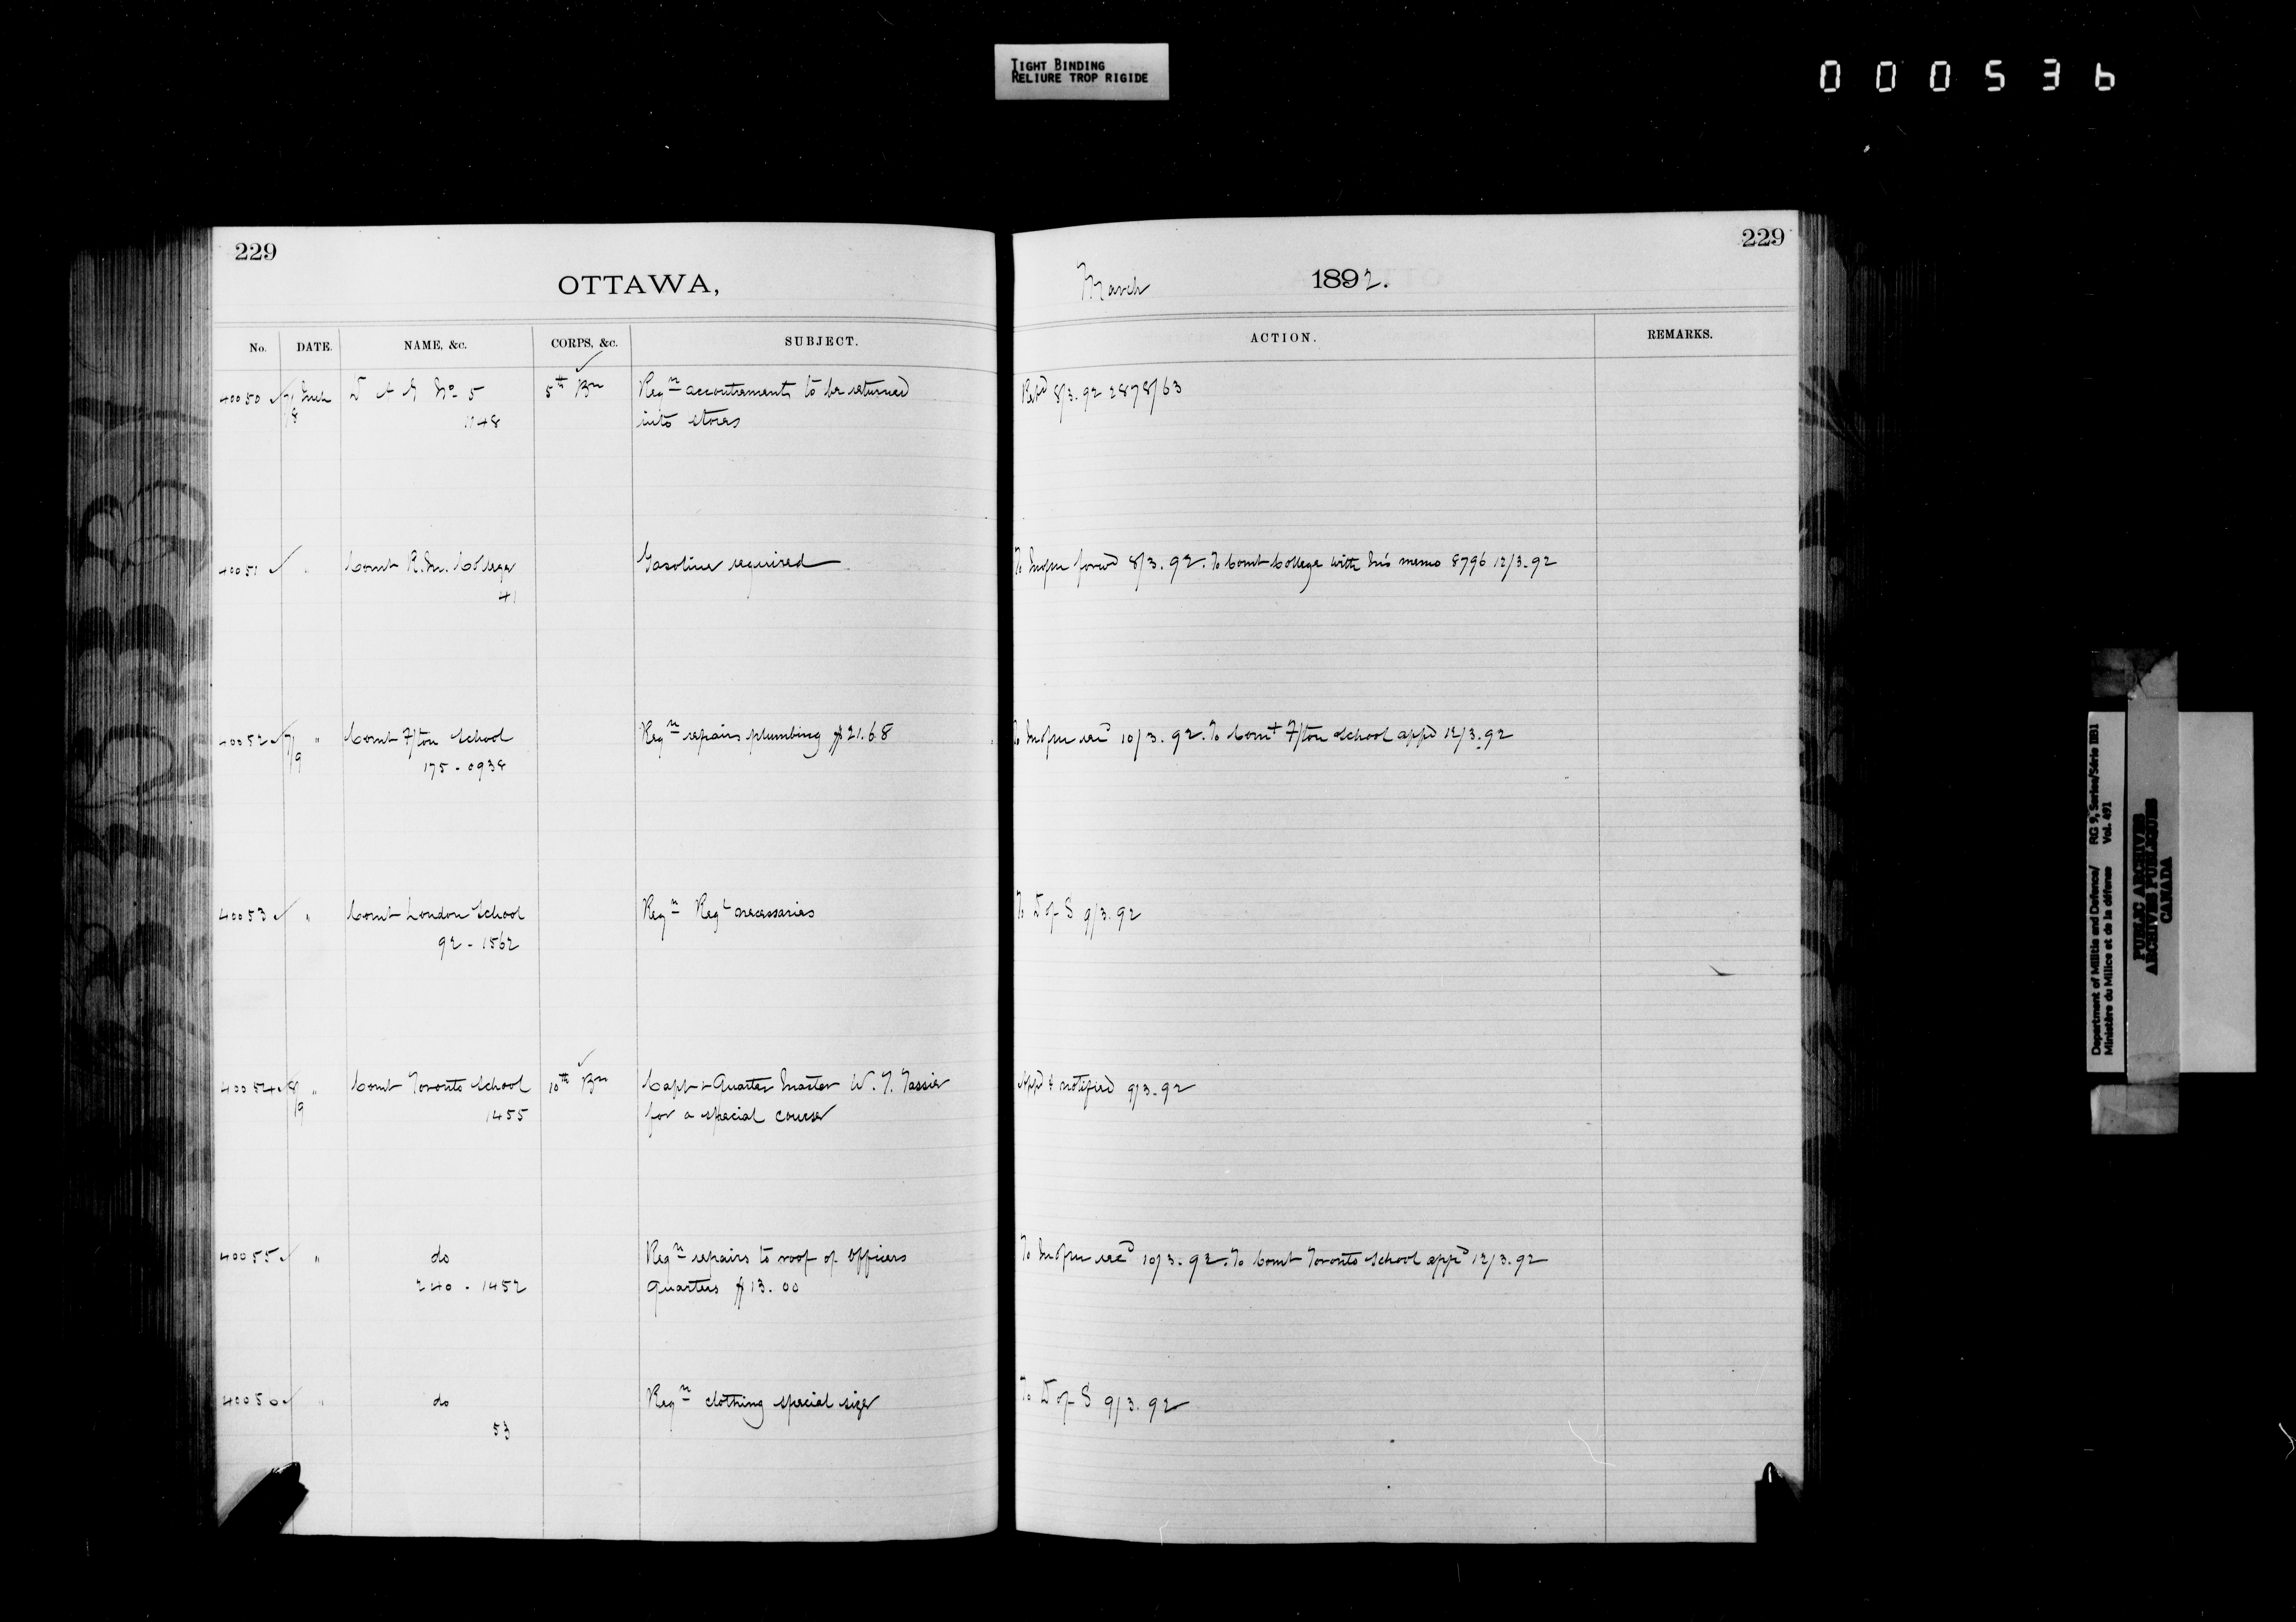 TIGHT BINDING
RELIURE TROP RIGIDE
000536
229
OTTAWA,
No. DATE. NAME, &c. CORPS, &c. SUBJECT.
40050 7/8 Mch D A G No 5 5th Bn Reqn accoutrements to be returned
1148 into stores
40051 " Comt R. M. College Gasoline required
41
40052 7/9 " Comt F/ton School Reqn repairs plumbing $21.68
175 - 0938
40053 " Comt London School Reqn Regl necessaries
92 - 1562
40054 8/9 " Comt Toronto School 10th Bn Capt & Quarter Master W. T. Tassie
1455 for a special course
40055 " do Reqn repairs to roof of Officers
240 - 1452 Quarters $13.00
40050 " do Reqn clothing special size
53
229
March 1892.
ACTION. REMARKS.
Retd 8/3.92 2878/63
To forwd 8/3.92. To Comt College with memo 8796 12/3.92
To recd 10/3.92. To Comt F/ton School appd 12/3.92
To D of S 9/3.92
Appd & notified 9/3.92
To recd 10/3.92. To Comt Toronto School appd 12/3.92
To D of S 9/3.92
Department of Militia and Defence/ RG 9, Series/Série IIB1
Ministère du Milice et de la défense Vol. 491
PUBLIC ARCHIVES
ARCHIVES PUBLIQUES
CANADA